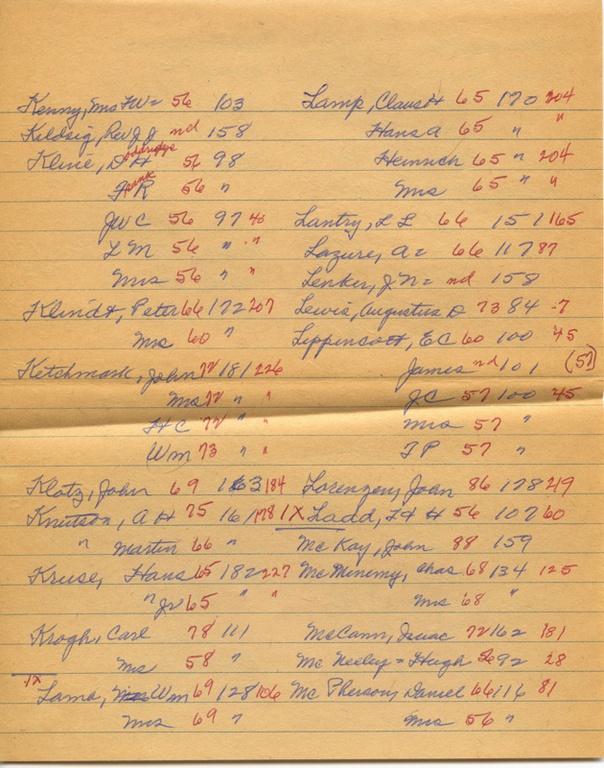 Kenny, Mrs FW = 56 103
Kildsig, Rev J J nd 158
Kline, D H 56 98
Frank R 56 "
JWC 56 97 40
L M 56 " "
Mrs 56 " "
Klindt, Peter 66 172 207
Mrs 60 "
Ketchmark, John 72 181 226
Mrs 72 " "
H C 72 " "
Wm 73 " "
Klotz, John 69 163 184
Knutson, A H 75 161 178
" Martin 66 "
Kruse, Hans 65 182 227
" Jr 65 " "
Krogh, Carl 78 111
Mrs 58 "
1X
Lama, Wm 69 128 106
Mrs 69 "
Lamp, Claus H 65 170 204
Hans A 65 " "
Heinrich 65 " 204
Mrs 65 " "
Lantry, L L 66 151 165
Lazure, A = 66 117 87
Lenker, J N = nd 158
Lewis, Augustus D 73 84 -7
Lippincott, E C 60 100 45
James nd 101 (57)
J C 57 100 45
Mrs 57 "
T P 57 "
Lorenzen, Joan 86 178 219
1X Ladd, F H 56 107 60
McKay, John 88 159
McMinemy, Chas 68 134 125
Mrs 68 "
McCann, Isaac 72 162 181
McNeeley = Hugh 56 92 28
McPherson, Daniel 66 116 81
Mrs 56 "